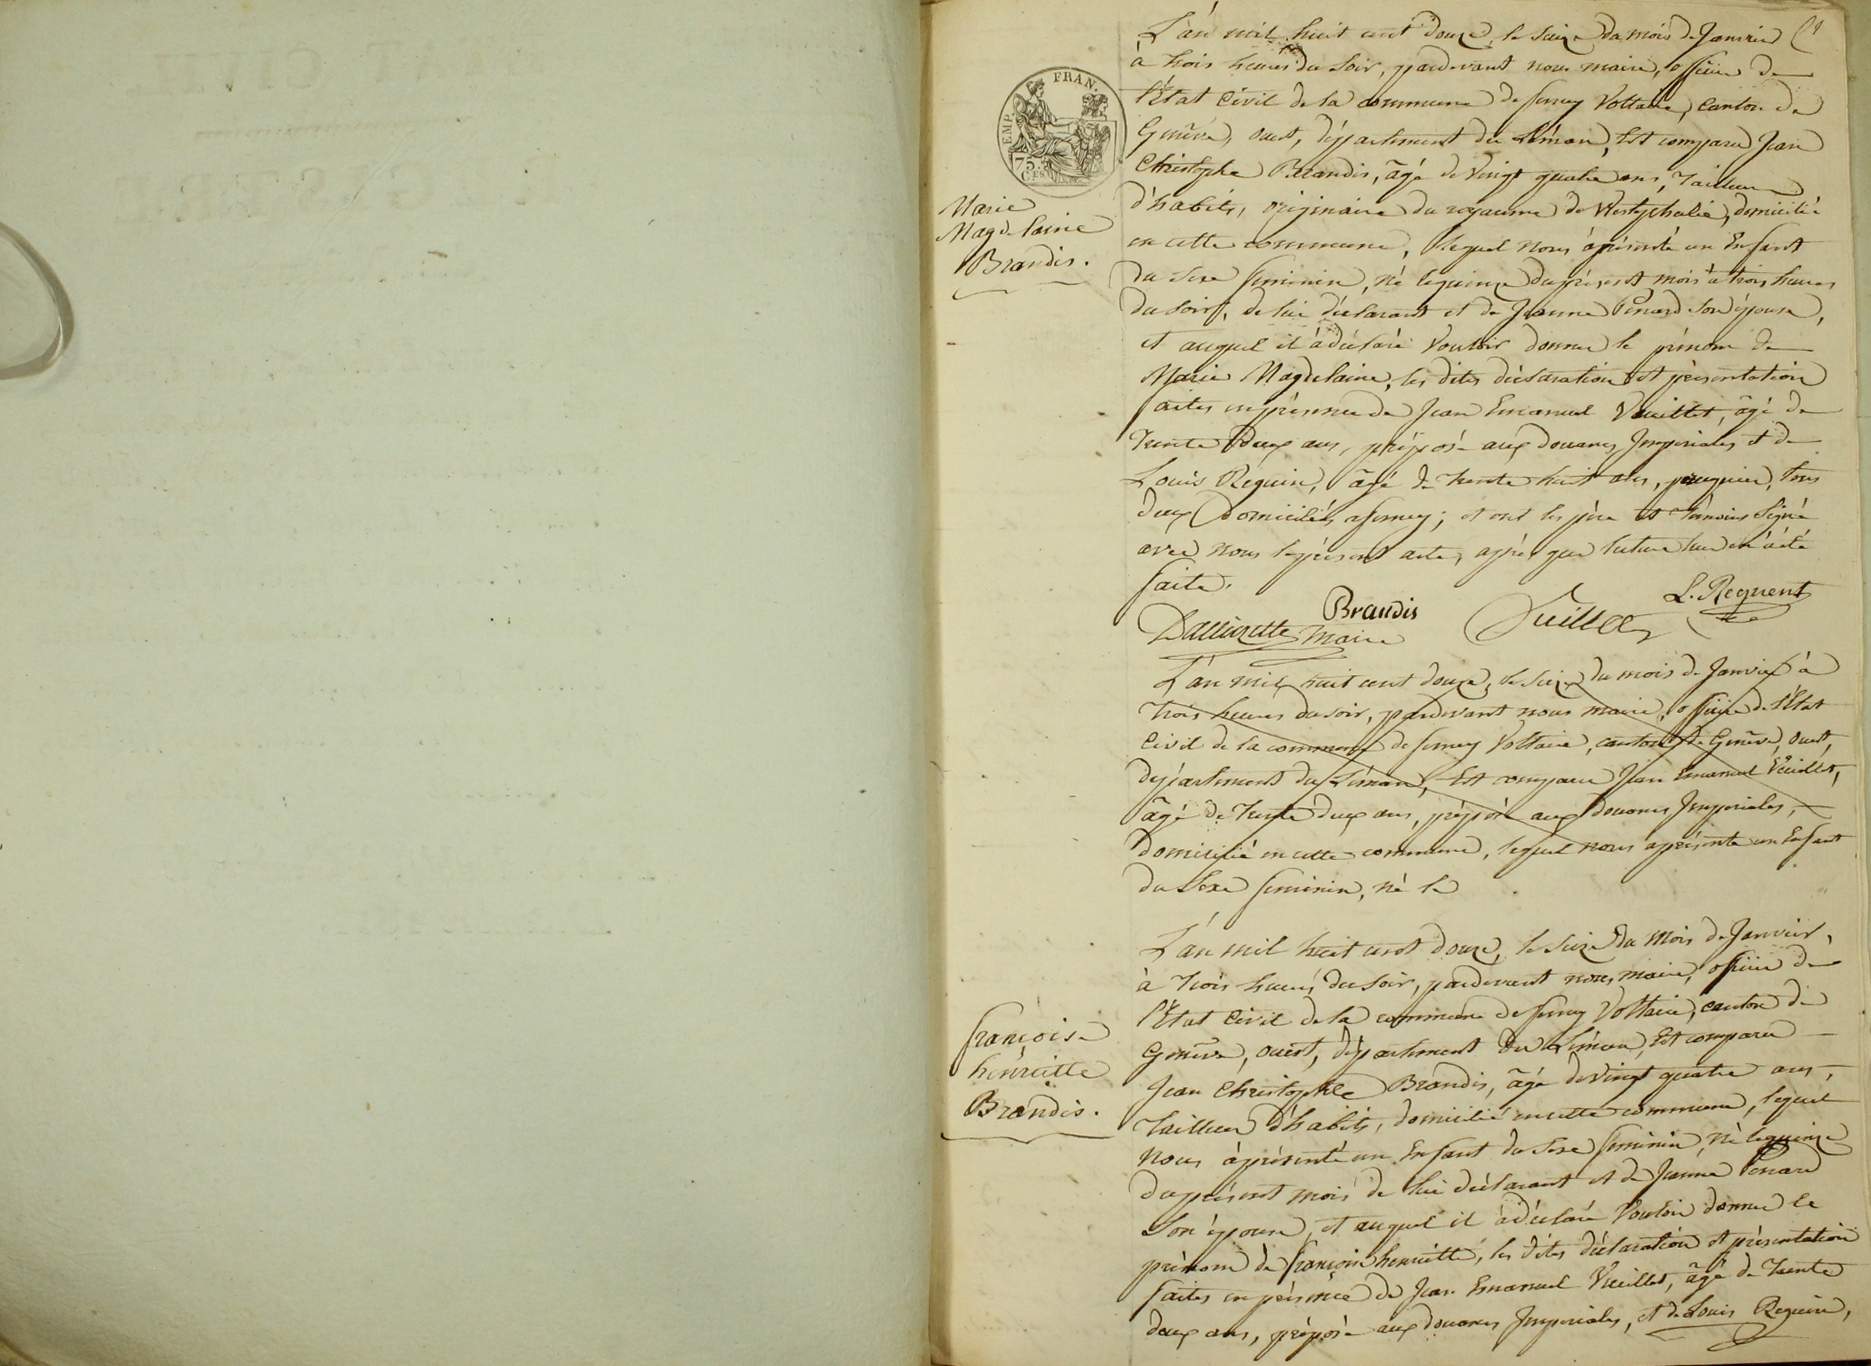 L'an mil huit cent douze, le seize du mois de Janvier
à trois heures du soir, pardevant nous maire, officier de
l'Etat Civil de la commune de ferney Voltaire, canton de
Genêve, ouest, département du Léman, Est comparu Jean
Christophe Brandis, âgé de vingt quatre ans, Tailleur
d'habits, originaire du royaume de Westphalie, domicilié
en cette commune, lequel nous à présenté un Enfant
du sexe feminin, né le quinze du présent mois à trois heures
du soir, de lui déclarant et de Jeanne Penard son épouse,
et auquel il à déclaré vouloir donner le prénom de
Marie Magdelaine, les dites déclaration et présentation
faites en présence de Jean Emanuel Vuillet, âgé de
trente deux ans, préposé aux douanes Imperiales et de
Louis Requin, âgé de trente huit ans, peruquier, tous
deux domiciliés a ferney; et ont les père et témoins signé
avec nous le présent acte, après que lecture leur en à été
faite.
Marie
Magdelaine
Brandis.
EMP. FRAN.
75.
CES
Brandis
L. Requent
maire
Vuillet
L'an mil huit cent douze, le seize du mois de Janvier à
trois heures du soir, pardevant nous maire, officier de l'Etat
Civil de la commune de ferney Voltaire, canton de Genêve, ouest,
département du Léman, Est comparu Jean Emanuel Vuillet,
âgé de trente deux ans, préposé aux douanes Imperiales,
domicilié en cette commune, lequel nous à présenté un Enfant
du sexe feminin, né le
L'an mil huit cent douze, le seize du mois de Janvier,
à trois heures du soir, pardevant nous maire, officier de
l'Etat Civil de la commune de ferney Voltaire, canton de
Genêve, ouest, département du Léman, Est comparu
Jean Christophe Brandis, âgé de vingt quatre ans,
Tailleur d'habits, domicilié en cette commune, lequel
nous à présenté un Enfant du sexe feminin, né le quinze
du présent mois de lui déclarant et de Jeanne Penard
son épouse, et auquel il à déclaré vouloir donner le
prénom de françoise henriette, les dites déclaration et présentation
faites en présence de Jean Emanuel Vuillet, âgé de trente
deux ans, préposé aux douanes Imperiales, et de Louis Requin,
françoise
henriette
Brandis.